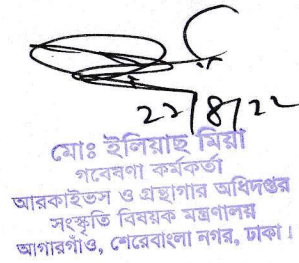 ২২/৪/২২
মোঃ ইলিয়াছ মিয়া
গবেষণা কর্মকর্তা
আরকাইভস ও গ্রন্থাগার অধিদপ্তর
সংস্কৃতি বিষয়ক মন্ত্রণালয়
আগারগাঁও, শেরেবাংলা নগর, ঢাকা।